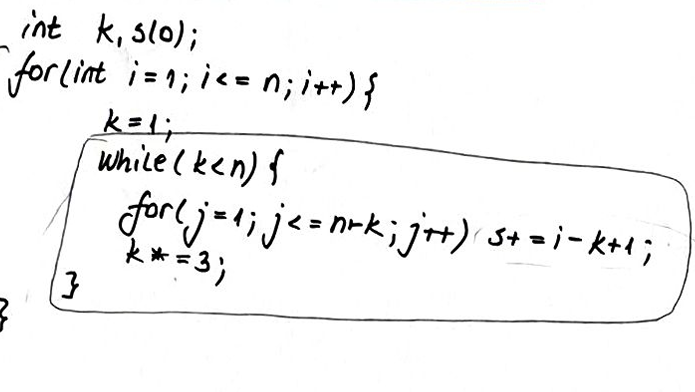 int k, s(0);
for(int i=1; i<= n; i++) {
k=1;
while(k<n) {
for(j=1; j<= n-k; j++) s+=i-k+1;
k*=3;
}
}